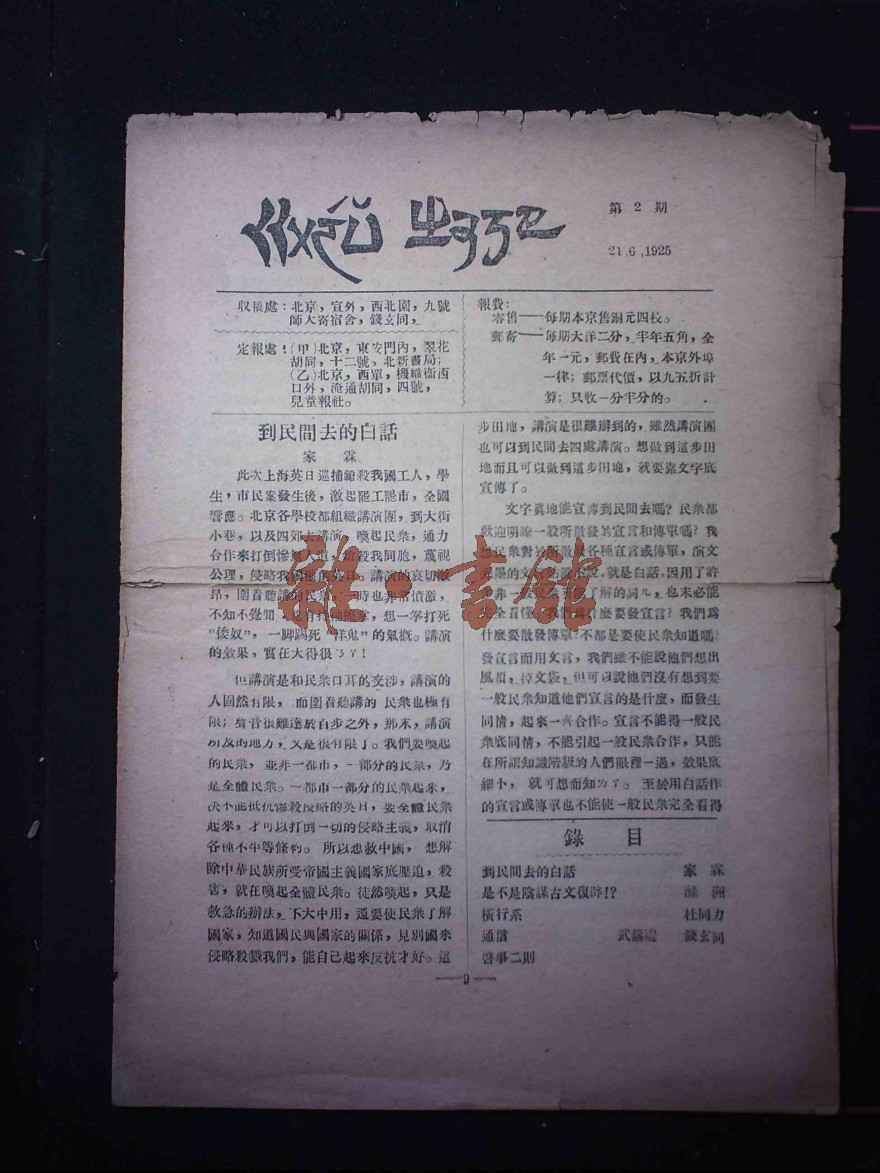 ㄍㄨㄛˊㄩˇ ㄓㄡㄎㄢ
第 2 期
21,6,1925
收稿處：北京，宣外，西北園，九號
師大寄宿舍，錢玄同。
定報處：（甲）北京，東安門內，翠花
胡同，十二號，北新書局；
（乙）北京，西單，機織衞西
口外，淹通胡同，四號，
兒童報社。
報費：
零售——每期本京售銅元四枚。
郵寄——每期大洋二分，半年五角，全
年一元，郵費在內，本京外埠
一律；郵票代價，以九五折計
算；只收一分半分的。
到民間去的白話
家 霖
此次上海英日巡捕鎗殺我國工人，學
生，市民案發生後，激起罷工罷市，全國
響應。北京各學校都組織講演團，到大街
小巷，以及四郊去講演，喚起民衆，通力
合作來打倒慘無人道，殺我同胞，蔑視
公理，侵略我國的英日。講演的哀切激
昂，圍音聽講的民衆，時也非常憤激，
不知不覺間
，想一拳打死
“倭奴”，一脚踢死“洋鬼”的氣槪。講演
的效果，實在大得很ㄋㄚ！
但講演是和民衆口耳的交涉，講演的
人固然有限，而圍音聽講的民衆也極有
限；聲音很難達於百步之外，那末，講演
所及的地方，又是很有限了。我們要喚起
的民衆，並非一都市，一部分的民衆，乃
是全體民衆。一都市一部分的民衆起來，
決不能抵抗慘殺侵略的英日，要全體民衆
起來，才可以打倒一切的侵略主義，取消
各種不平等條約。所以想救中國，想解
除中華民族所受帝國主義國家底壓迫，殺
害，就在喚起全體民衆。徒然喚起，只是
救急的辦法，不大中用，還要使民衆了解
國家，知道國民與國家的關係，見別國來
侵略殺戮我們，能自己起來反抗才好。這
步田地，講演是很難辦到的，雖然講演團
也可以到民間去四處講演。想做到這步田
地而且可以做到這步田地，就要靠文字底
宣傳了。
文字眞地能宣傳到民間去嗎？民衆都
歡迎明瞭一般所散發的宣言和傳單嗎？我
想民衆對於所散發各種宣言或傳單，演文
弄墨的文言，就是白話，因用了許
多非一般民衆所能了解的詞兒，也未必能
完全看懂。我們爲什麼要發宣言？我們爲
什麼要散發傳單？不都是要使民衆知道嗎？
發宣言而用文言，我們雖不能說他們想出
風頭，掉文袋，但可以說他們沒有想到要
一般民衆知道他們宣言的是什麼，而發生
同情，起來一齊合作。宣言不能得一般民
衆底同情，不能引起一般民衆合作，只能
在所謂知識階級的人們眼裡一過，效果底
細小，就可想而知ㄌㄚ。至於用白話作
的宣言或傳單也不能使一般民衆完全看得
錄 目
到民間去的白話 家 霖
是不是陰謀古文復辟!？
橫行系 杜同力
通信 武 錢玄同
啓事二則
—9—
雜·書館